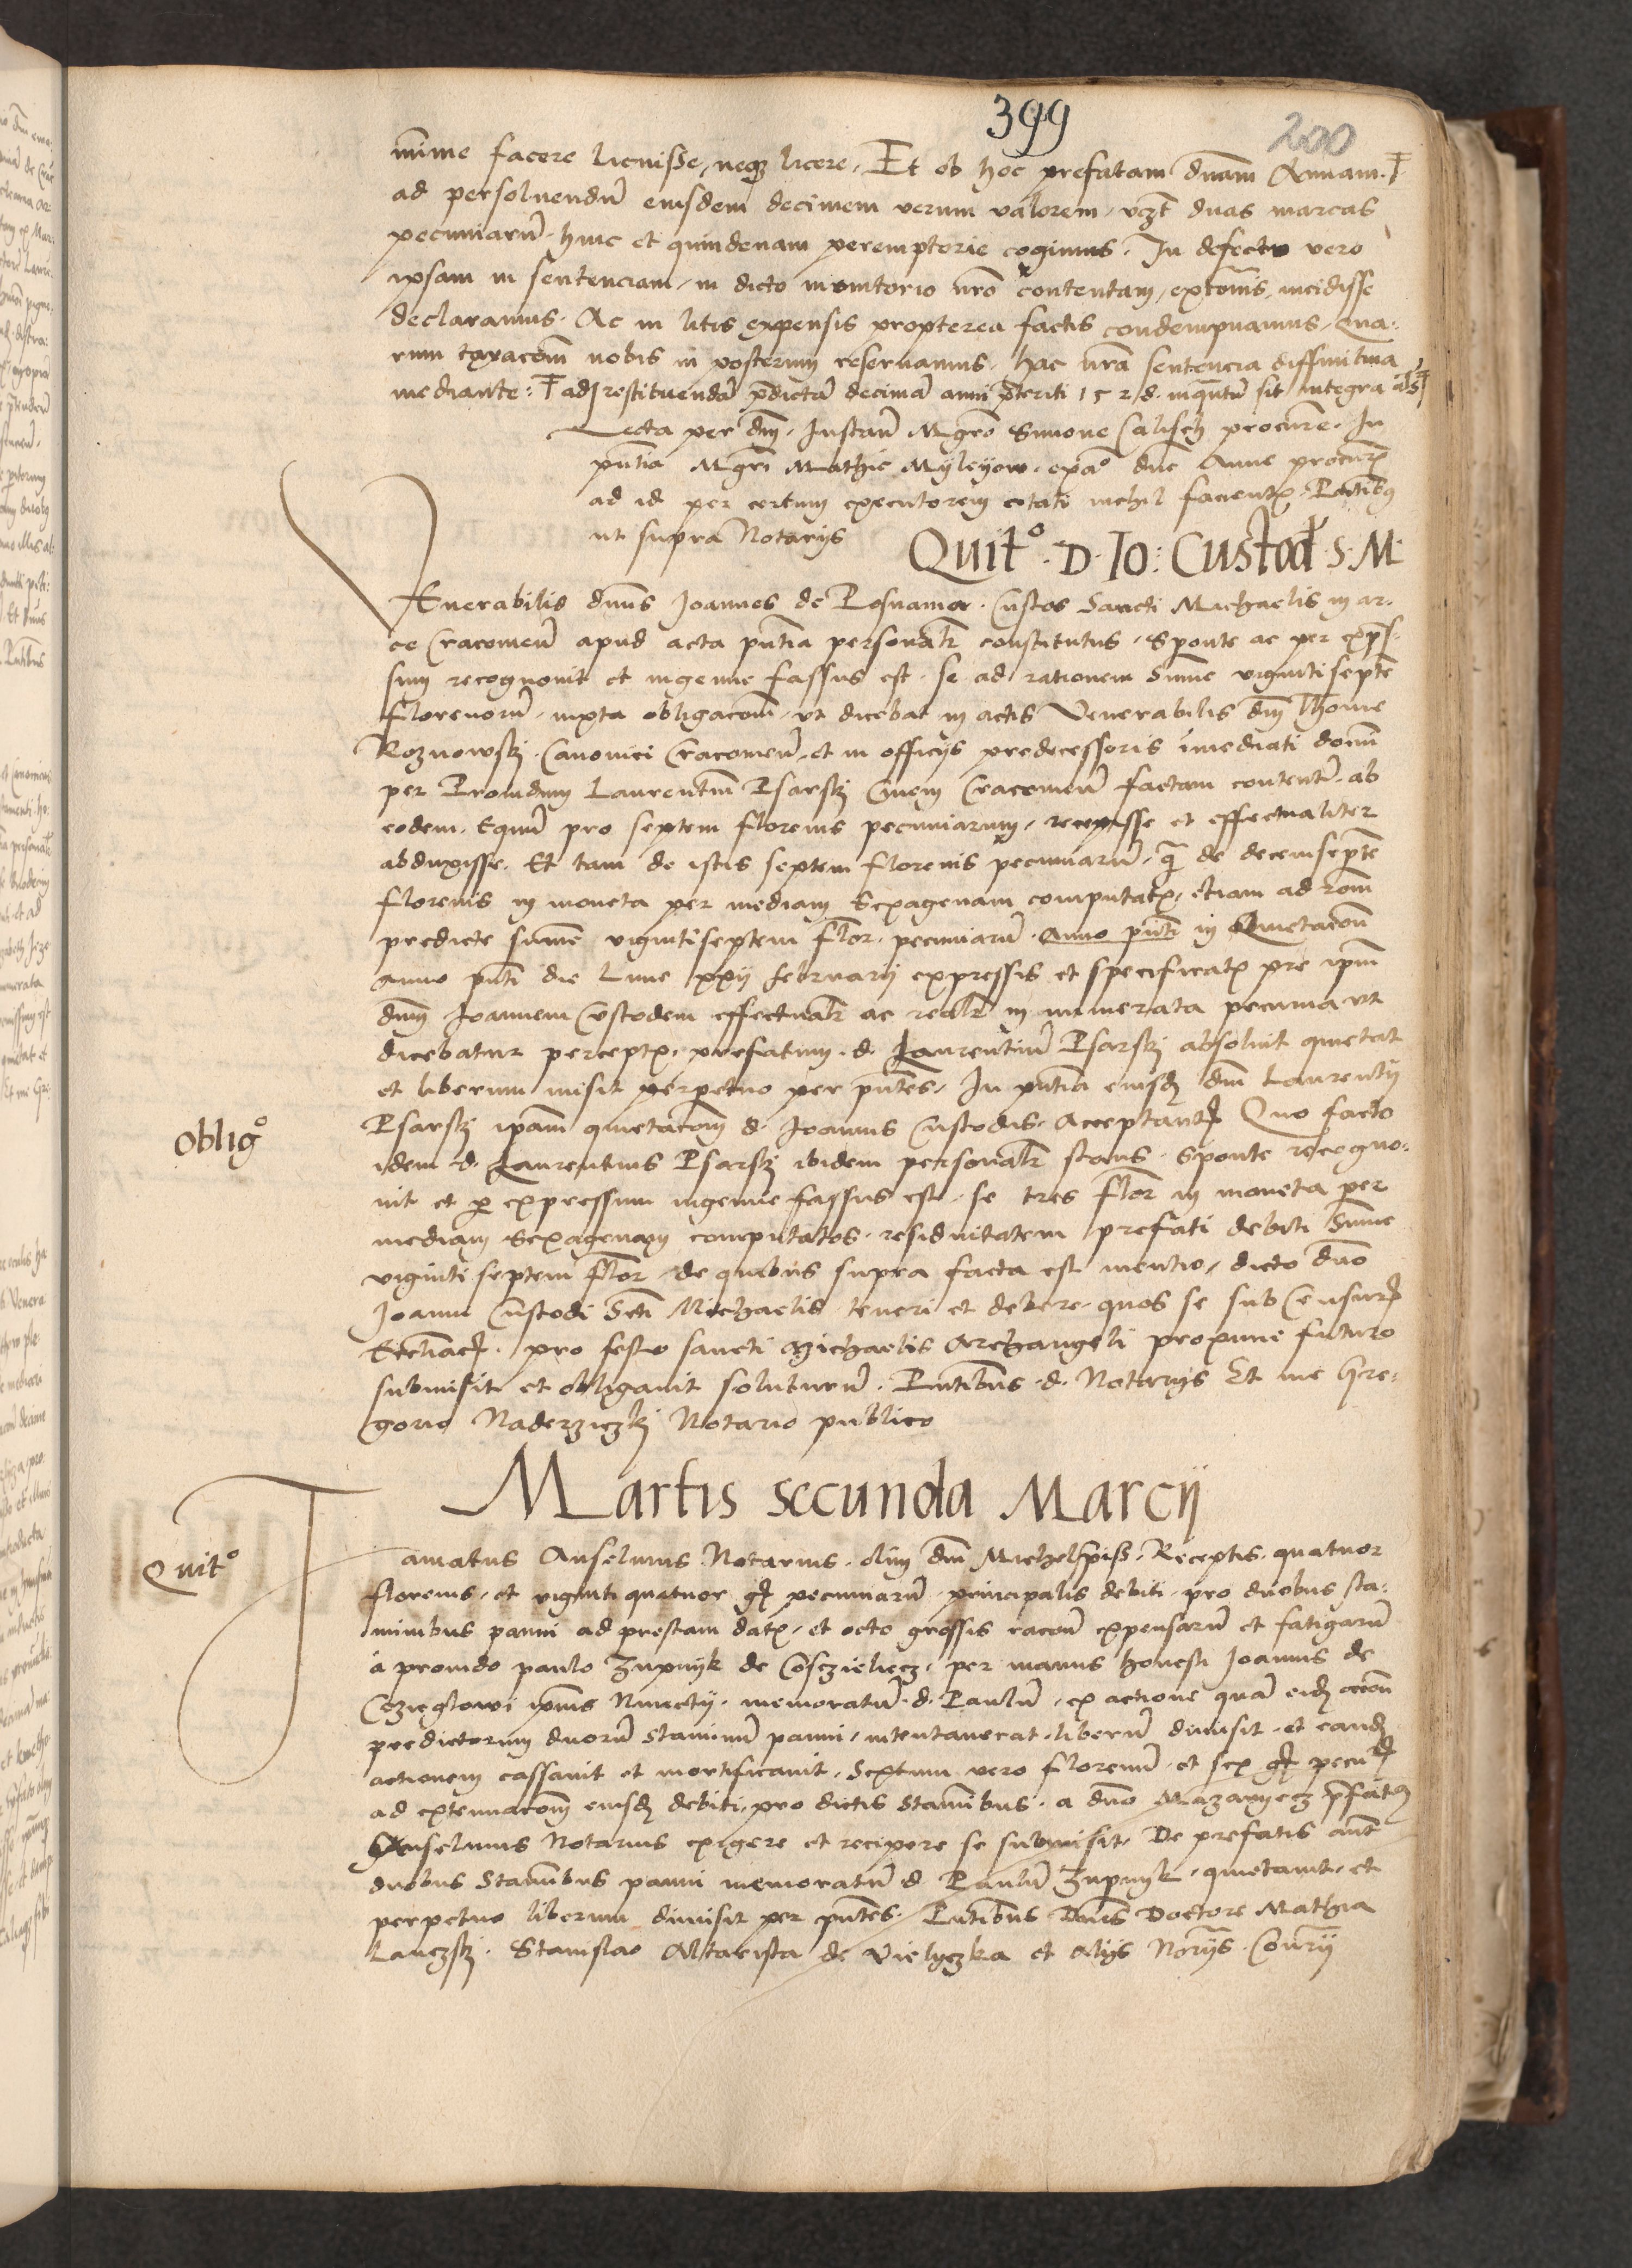 399
200
mime facere licuisse, neq3 licere. Et ob hoc prefatam dnam Annam ꟻ
ad persoluendu eiusdem decimem verum valorem, vzt duas marcas
pecuniaru. hinc et quindenam peremptorie cogimus. In defectu vero
ipsam in sentenciam, in dicto monitorio nro contentam, exconis, incidisse
declaramus. Ac in litis expensis propterea factis condempnamus, Qua:
rum taxacom nobis in posterum reseruamus, hac nra sentencia diffinitiua
mediante: ad restituenda pdicta decima anni preteriti 152 inquantu sit integra
Lecta per dnm. Instan Mgro Simone Calisch procure. In
pntia Mgri Mathie Myleyow. dne Anne procur
ad id per certum executorem citati nichil facient. Pntibus
ut supra Notarijs
Quit° . D. Io: Custod. S. M.
Venerabilis dnus Joannes de Posnania. Custos Sancti Michaelis in ar.
ce Cracouien apud acta pntia personalr constitutus, Sponte ac per expres
sum recognouit et ingenue fassus est. se ad rationem Sume vigintisepte
florenoru, iuxta obligacom, ut dicebat in actis Venerabilis dni Thome
Roznowskj. Canonici Cracouien, et in officijs predecessoris imediati domi
per Prouidum Laurentm Psarskj Ciuem Cracouien factam contentis. ab
eodem. Equu pro septem florenis pecuniarum, recepisse et effectualiter
abduxisse. Et tam de istis septem florenis pecuniaru, qa de decemsepte
florenis in moneta per mediam Sexagenam computatis, etiam ad rom
predicte sume vigintiseptem flor. pecuniaru. anno pnti in Quietacom
anno pnti die Lune xxij februarij expressis et specificatis pre ipm
dnm Joannem Custodem effectualr ac realr in numerata pecunia ut
dicebatur perceptis. prefatum. d. Laurentiu Psarskj absoluit quietat
et liberum misit perpetuo per pntes. In pntia eiusdem dni Laurentij
Psarskj ipam quietacom d. Joannis Custodis. Acceptantis Quo facto
Oblig°
idem d. Laurentius Psarskj ibidem personalr stans. Sponte recogno:
uit et p expressum ingenue fassus est. se tres flor in moneta per
mediam Sexagenam computatos. residuitatem prefati debiti Sume
viginti septem flor, de quibus supra facta est mentio, dicto dno
Joanni Custodi Scti Michaelis teneri et debere. quos se sub Censuris
Ecclicis. pro festo sancti Michaelis Archangeli proxime futuro
submisit et obligauit soluturu. Pntibus. d. Notarijs Et me Gre:
gorio Naderziczkj Notario publico
Martis secunda Marcij
Quit°
Famatus Anselmus Notarius. olim dni Michelspiss. Receptis. quatuor
florenis, et viginti quatuor gr pecuniaru principalis debiti. pro duobus sta:
minibus panni ad prestam datis, et octo grossis racon expensaru et fatigaru
a prouido paulo Zupnyk de Cosczieliecz, per manus honesti Joannis de
Czięglowi ipius Nunctij. memoratu. d. Paulu, ex actione qua eidem occon
predictorum duoru Staminu panni, intentauerat. liberu dimisit. et eandem
actionem cassauit et mortificauit. Septimu vero florenu. et sex gr pecu
ad extenuacom eiusdem debiti, pro dictis Staminibus. a dno Mazaniecz pfat
Anselmus Notarius exigere et recipere se submisit. De prefatis aut
duobus Staminbus panni memoratu d Paulu Zupnyk. quietauit. et
perpetuo liberum dimisit per pntes. Pntibus dnis Doctore Mathia
Lanczskj. Stanislao Altarista de Vielyczka et Alijs Norijs. Conrij